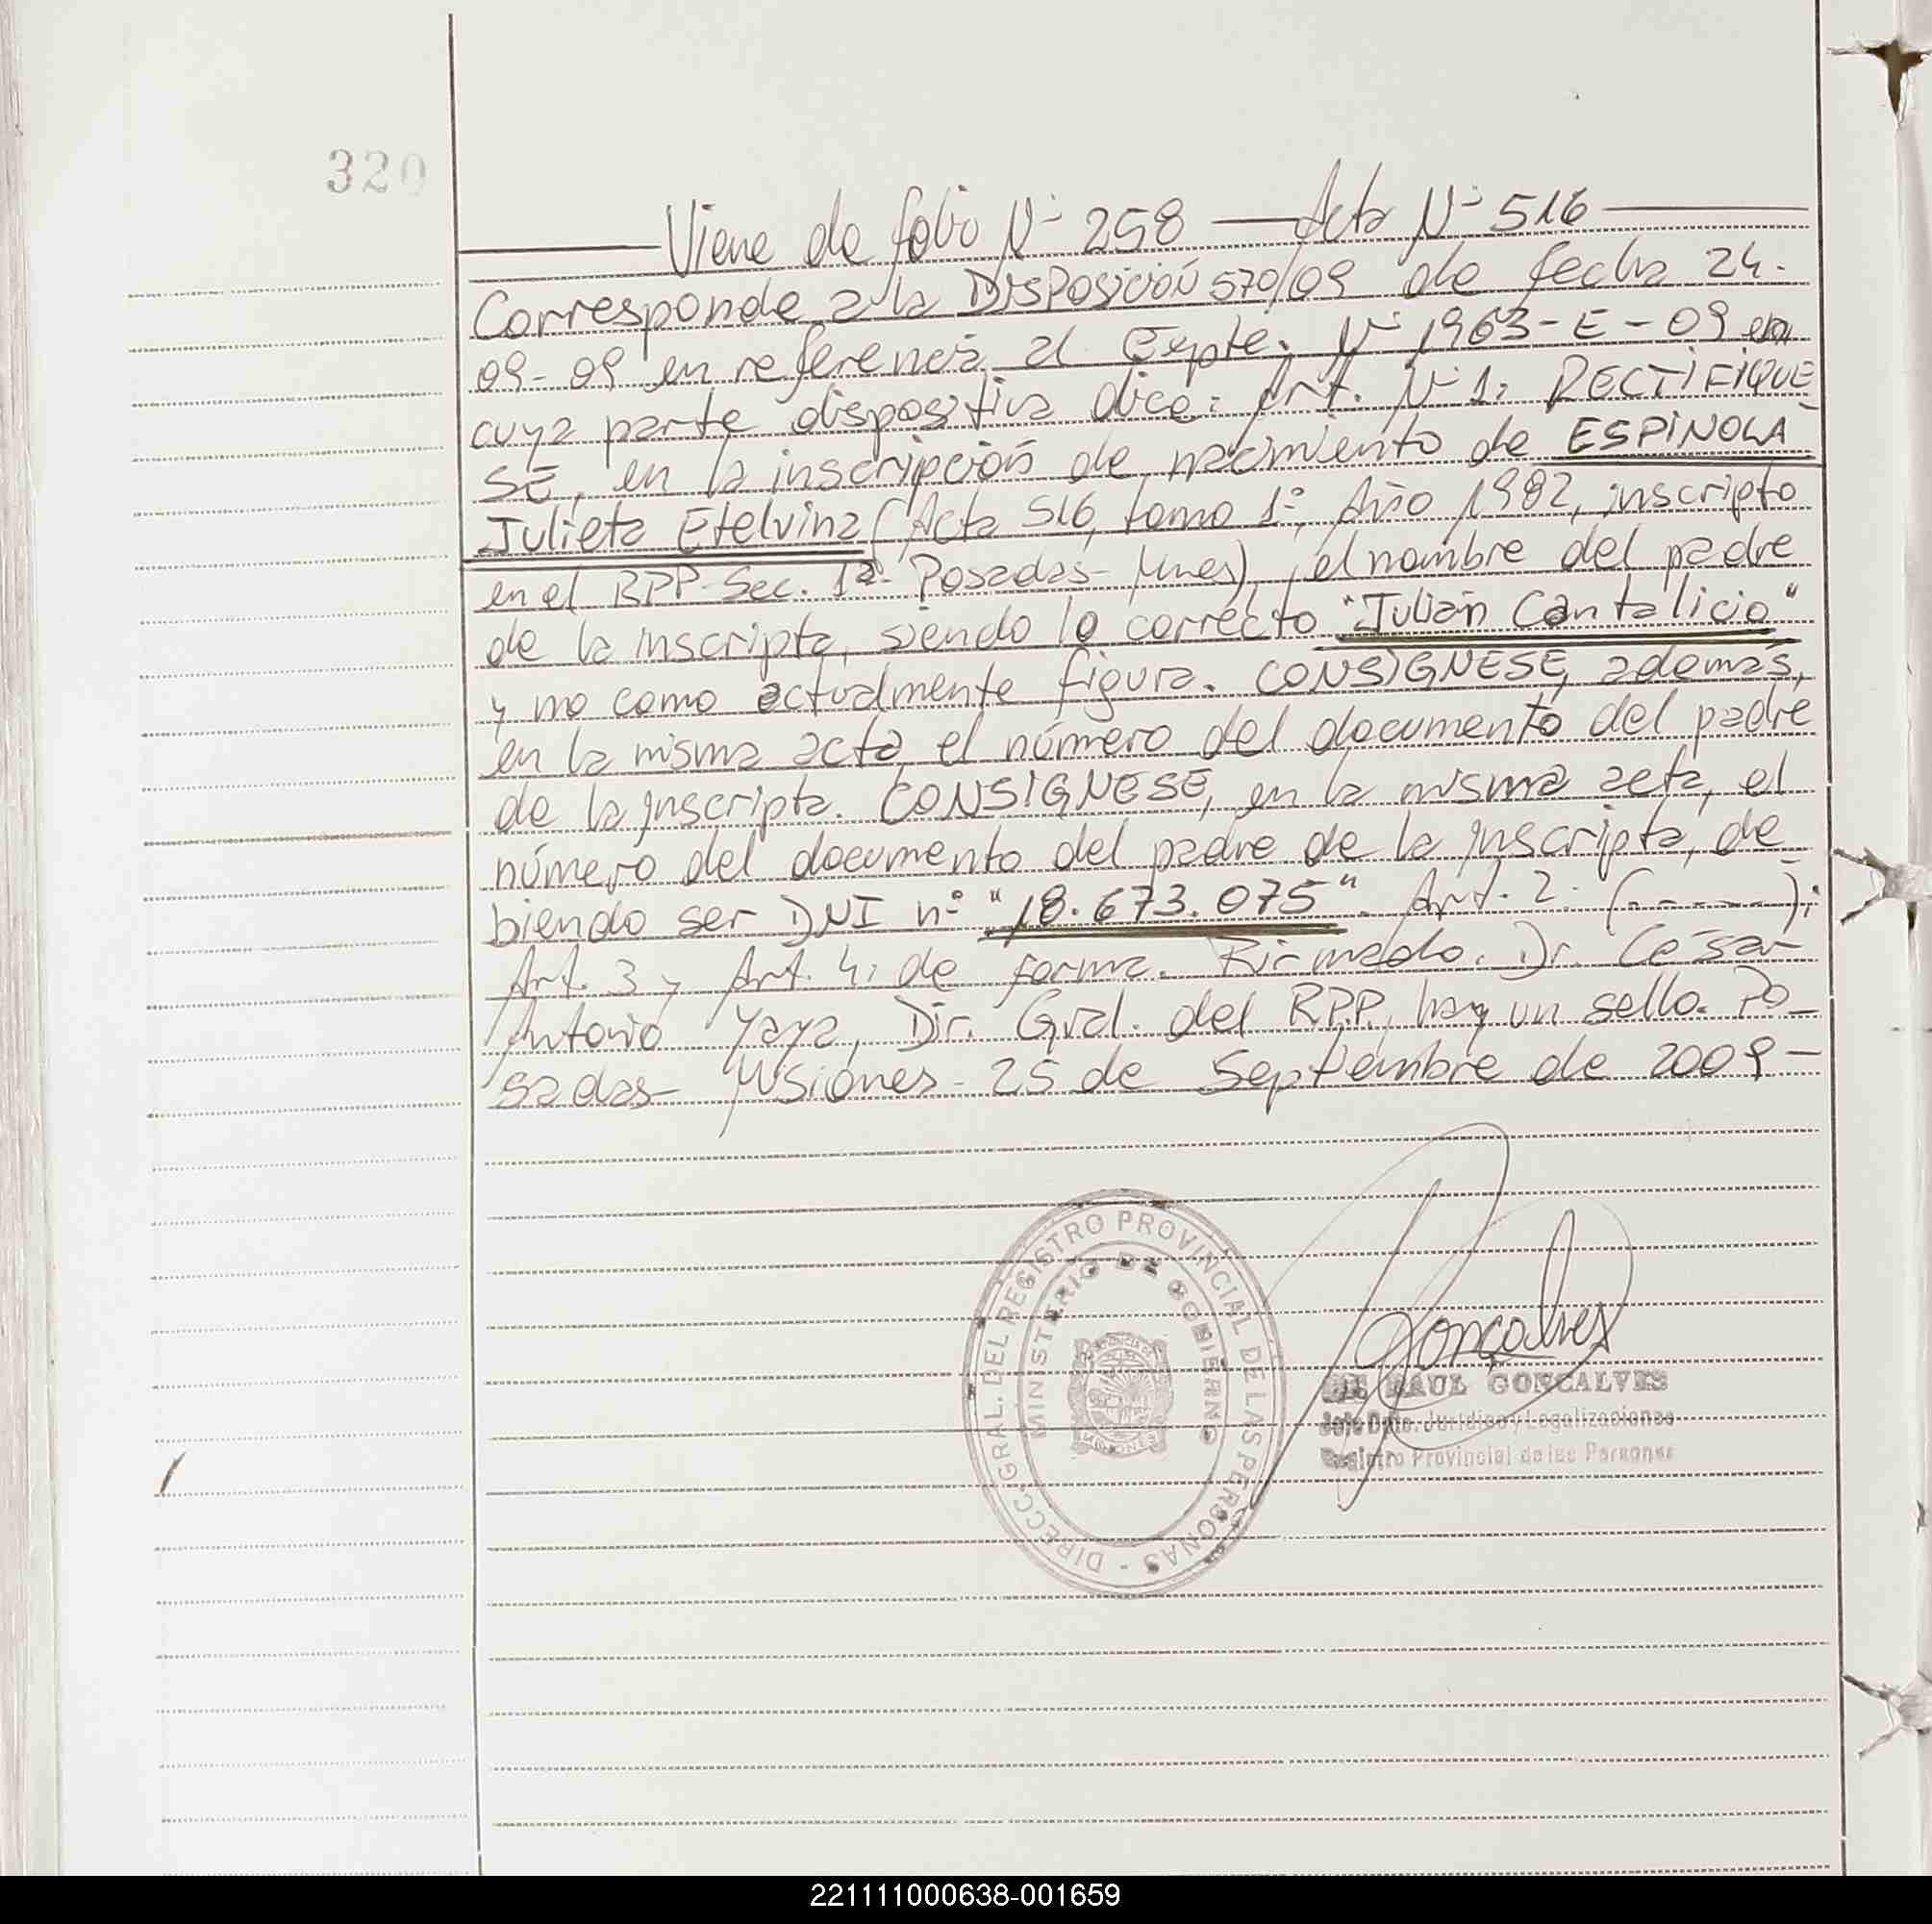 320
Viene de folio Nº 258 — Acta Nº 516
Corresponde a la DISPOSICIÓN 570/09 de fecha 24-
09-09 en referencia al Expte. Nº 1963-E-09 en
cuya parte dispositiva dice: Art. Nº 1: RECTIFIQUE
SE, en la inscripción de nacimiento de ESPINOLA
Julieta Etelvina (Acta 516, tomo 1º, Año 1982, inscripto
en el RPP-Sec. 1ª- Posadas- Mnes), el nombre del padre
de la inscripta, siendo lo correcto "Julián Cantalicio"
y no como actualmente figura. CONSIGNESE, además,
en la misma acta el número del documento del padre
de la inscripta. CONSIGNESE, en la misma acta, el
número del documento del padre de la inscripta, de-
biendo ser DNI nº "18.673.075". Art. 2: (------);
Art. 3 y Art. 4: de forma. Firmado. Dr. César
Antonio Yaya, Dir. Gral. del R.P.P., hay un sello. Po-
sadas- Misiones- 25 de Septiembre de 2009-
DIRECC. GRAL. DEL REGISTRO PROVINCIAL DE LAS PERSONAS -
MINISTERIO DE GOBIERNO
MISIONES
Gonçalves
RAUL GONCALVES
Jefe Dpto. Jurídico y Legalizaciones
Registro Provincial de las Personas
221111000638-001659